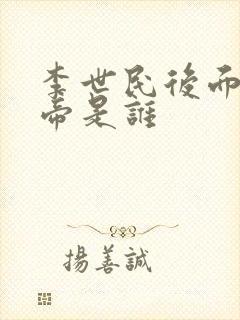 李世民後面
帝是誰
揚善誠